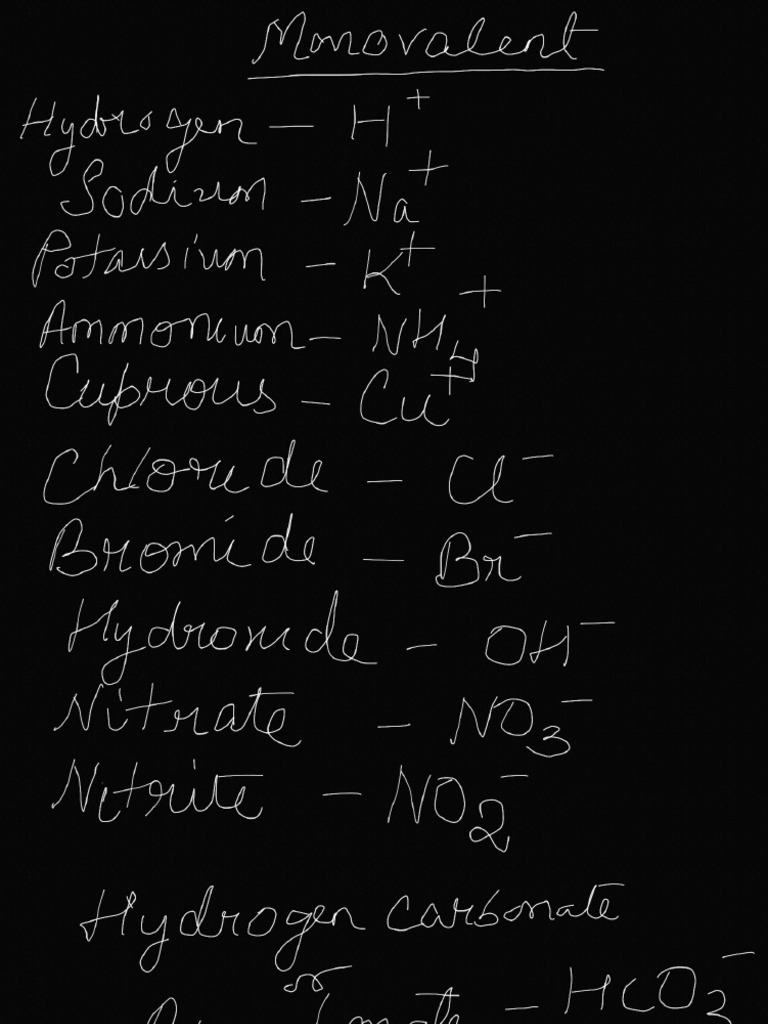 Monovalent
Hydrogen – H⁺
Sodium – Na⁺
Potassium – K⁺
Ammonium – NH₄⁺
Cuprous – Cu⁺
Chloride – Cl⁻
Bromide – Br⁻
Hydroxide – OH⁻
Nitrate – NO₃⁻
Nitrite – NO₂⁻
Hydrogen carbonate
or
– HCO₃⁻